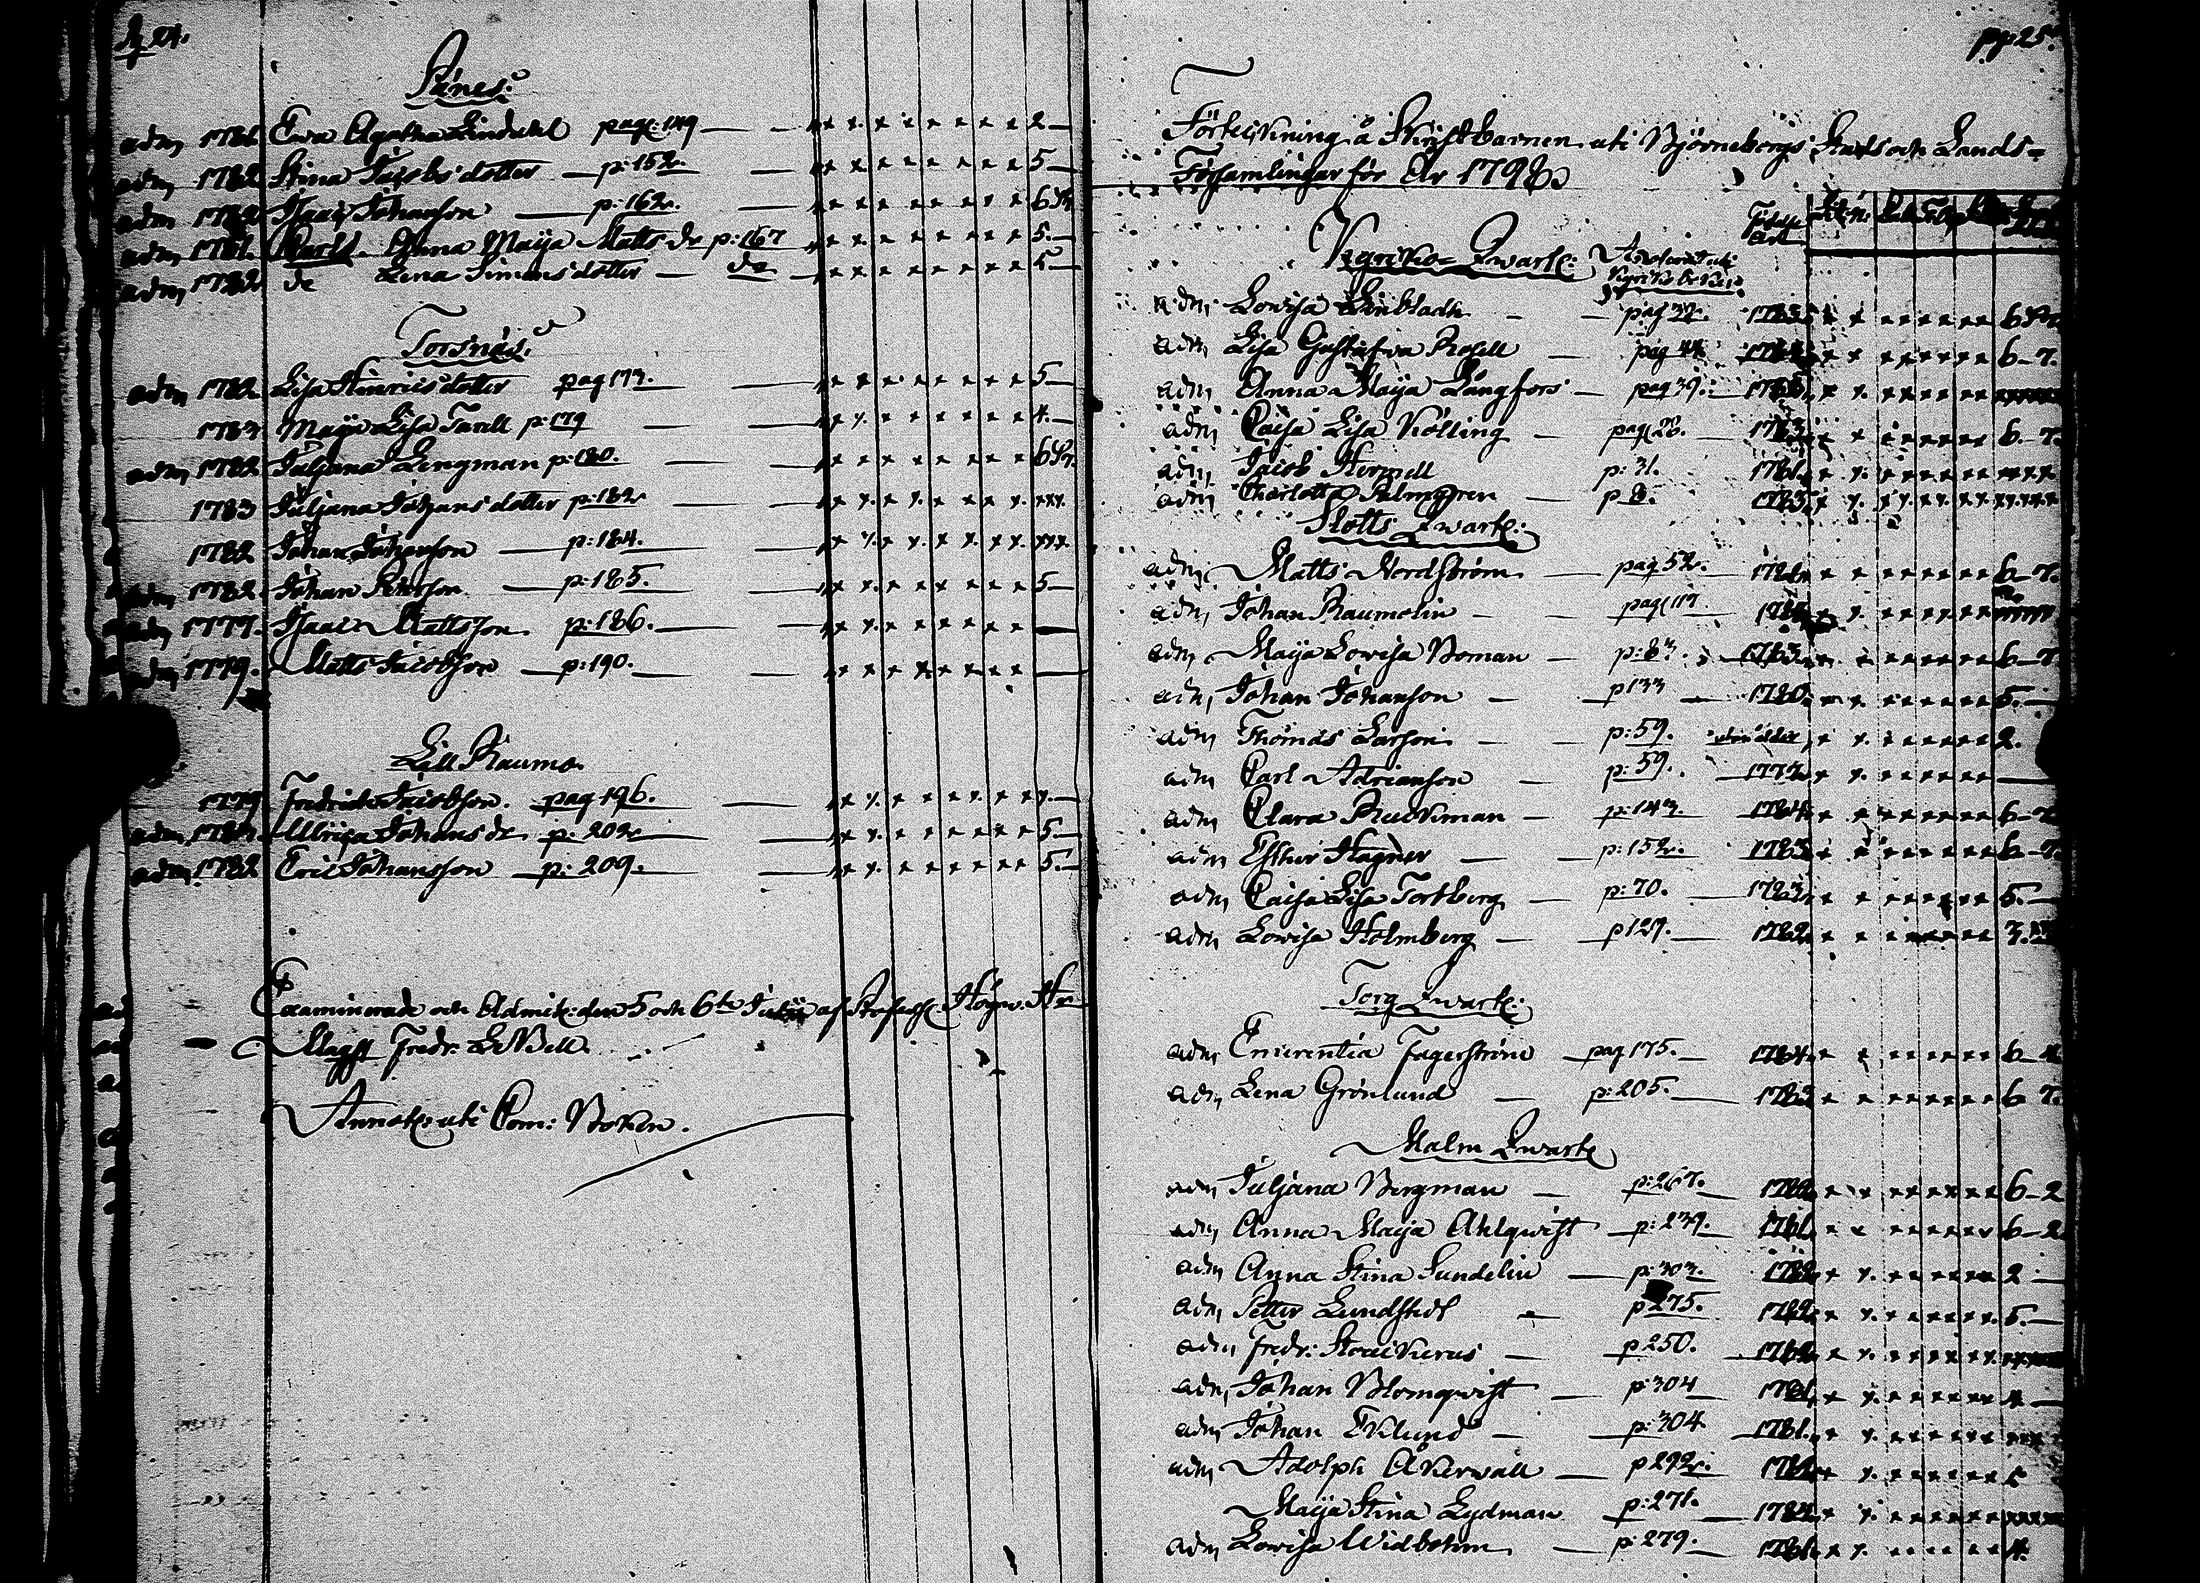 p 24.
Sånes:
adm 1781. Ewa Agatha Lindahl pag: 149 — 2 —
adm 1782 Stina Jacobs dotter — p: 152. — 5 —
adm 1782 Isaac Johanson — p: 162. — 6
adm 1781. Anna Maija Matts dr p: 167 5. —
adm 1782 de Lena Simons dotter — de — 5 —
Torsnäs:
adm 1782. Lisa Henrics dotter pag 173. — 5 —
1783 Maija Lisa Tarell p: 179 — 4. —
adm 1782 Juljana Lengman p: 180. — 6
1783 Juljana Johans dotter p: 182 xxx.
1782 Johan Johanson — p: 184. — xxx.
adm 1782. Johan Peterson — p: 185. — 5 —
adm 1777. Isaac Mattsson p: 186. —
adm 1779. Matts Jacobsson — p: 190. —
Lill Raumo.
1779 Fredric Jacobsson. pag 196. —
adm. Ulrica Johans dr p: 202 — 5. —
adm. 1782 Eric Johansson — p: 209. — 5. —
Examinerade och Admit: den 5 och 6te af Högw: Hr
Magst Fredr: LeBell.
Annot: uti Com: Boken.
pag: 25.
Förteckning å Skriftbarnen uti Björneborgs Stads och Lands-
Församlingar för År 1798.
Kyrcko- Qwart:
adm Lowisa — pag 32. 1783 6
adm Lisa Gustafva Rosell — pag 44 6 – 7.
adm Anna Maija Långfors — pag 39.
adm Caisa Lisa Kölling — pag 28. 1783 6 – 7.
adm Jacob p: 31. 1781. xxxx
adm Charlotta Palmgren — p 8. 1783
Slotts Qwart:
adm Matts Nordström — pag 52. 6 – 7.
adm Johan Raumolin — pag 117
adm Maija Lowisa Boman — p: 83 1783 6 – 7
adm Johan Johanson — p 133 — 1780. 5. —
adm Thomas Larson — p: 59. 2.
adm Carl Adrianson — p: 59. 1777. —
adm Clara Ruckman — p: 143. 1784 6 – 7
adm Esther Hagner — p: 152. 1783 6 – 7.
adm Caisa Lisa Tortberg — p: 70. 1783 5. —
adm Lowisa Holmberg — p 127. — 1782
Torg Qwart:
adm Emerentia Fagerström pag 175. — 1784 6 – 4
adm Lena Grönlund — p: 205. — 1783 6 7.
Malm Qwart
adm Juljana Bergman — p: 267. 6 – 2
adm Anna Maija Ahlqwist — p: 239. 1781. 6 – 2
adm Anna Stina Sundelin — p: 303. 1782 2 —
adm Petter Lundstedt — p 275. 1782 5. —
adm Fredr: — p 250. 1782
adm Johan Blomqwist — p: 304 1781 4 —
adm Johan Eklund — p: 304 1781.
adm Adolph Åkerwall — p 292. 1782
Maija Stina Lydman p: 271. — 1784
adm Lowisa Widbohm — p: 279. — 1781 4.